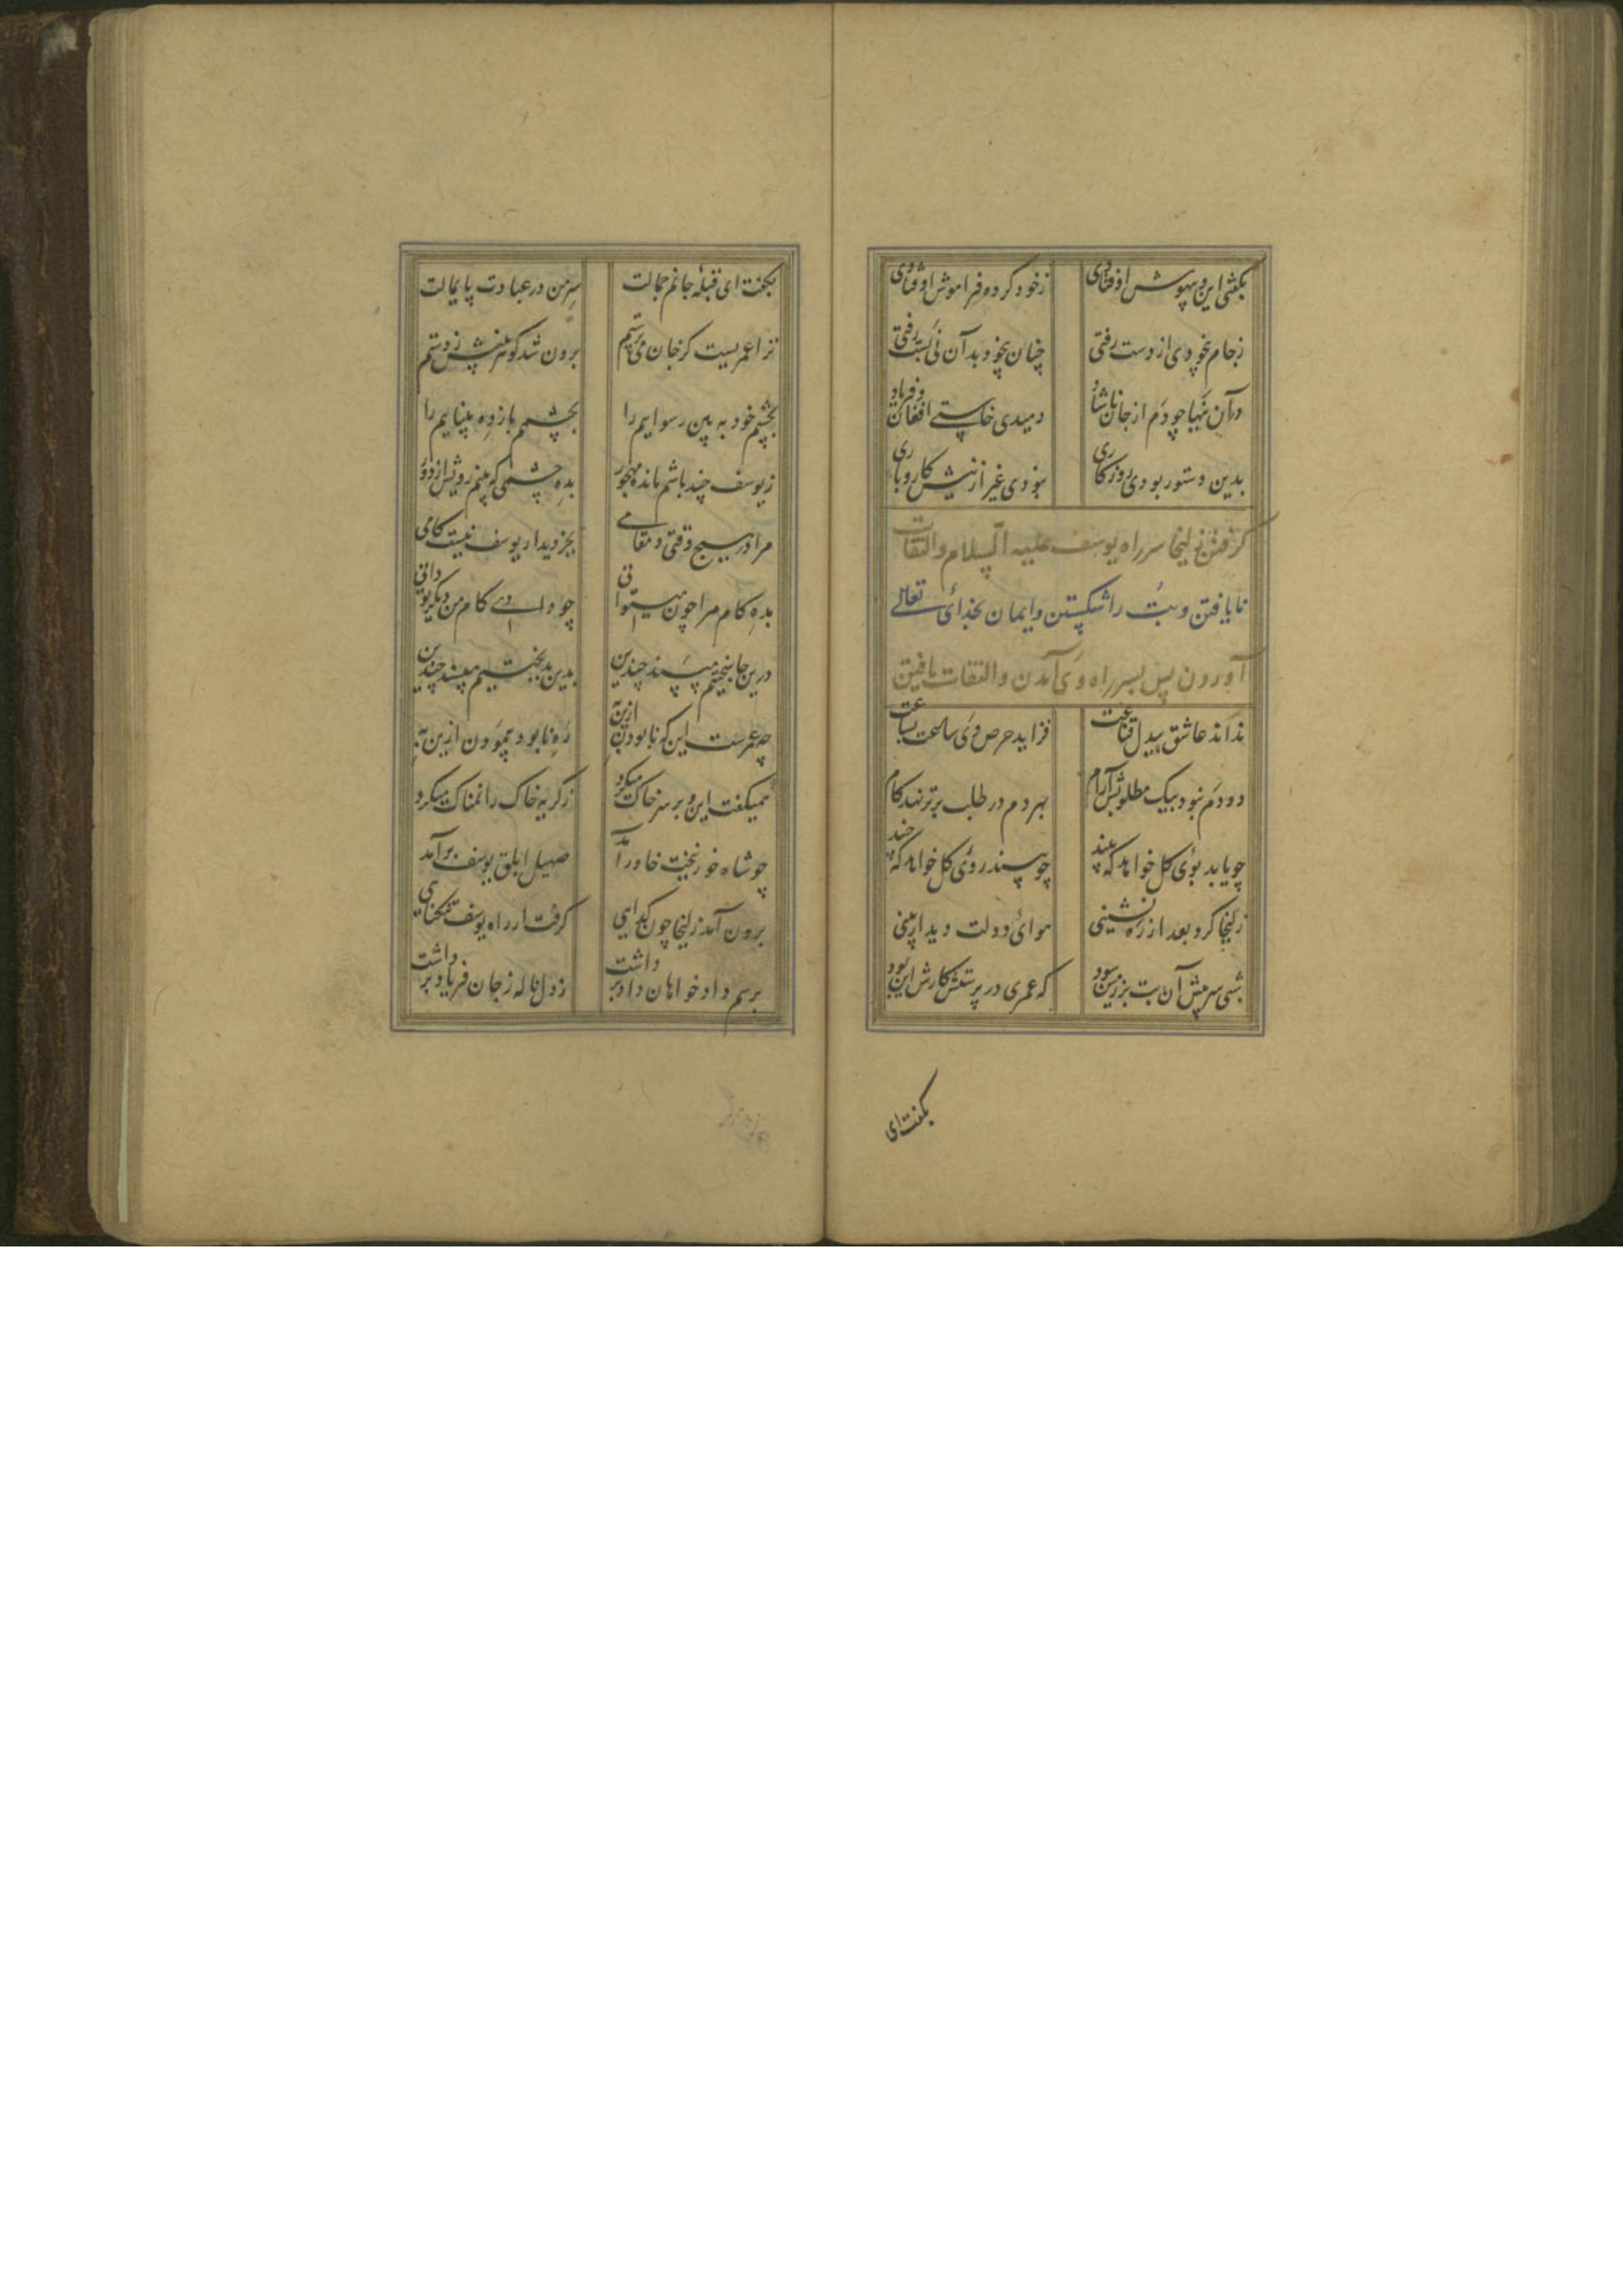 بگفتی این و بیهوش اوفتادی ز خود کرده فراموش اوفتادی
ز جام بیخودی از دست رفتی چنان بیخود بدان نی بست رفتی
در آن نیها چو دم از جان ناشاد دمیدی خاستی افغان و فریاد
بدین دستور بودی روزگاری نبودی غیر ازینش کار و باری
گرفتن زلیخا سر راه یوسف علیه السلام و التفات
نایافتن و بت را شکستن و ایمان بخدائی تعالی
آوردن پس بسر راه وی آمدن و التفات یافتن
نداند عاشق بیدل قناعت فزاید حرص وی ساعت بساعت
دو دم نبود بیک مطلوبش آرام بهر دم در طلب برتر نهد گام
چو یابد بوی گل خواهد که بیند چو بیند روی گل خواهد که چیند
زلیخا کرد بعد از ره نشینی هوائ دولت دیدار بینی
شبی سر پیش آن بت بر زمین سود که عمری در پرستش کارش این بود
بگفت ای
بگفت ای قبله جانم جمالت سر من در عبادت پایمالت
ترا عمریست کز جان می پرستم برون شد گوهر بینش ز دستم
بچشم خود به بین رسواییم را بچشمم باز ده بیناییم را
ز یوسف چند باشم مانده مهجور بده چشمی که بینم رویش از دور
مرا در هیچ وقتی و مقامی بجز دیدار یوسف نیست کامی
بده کام مرا چون میتوانی چو دادی کام من دیگر تو دانی
درین جان سختیم مپسند چندین بدین بدبختیم مپسند چندین
چه عمرست این که نابودن ازین به ره نابود پیمودن ازین به
همیگفت این و بر سر خاک میکرد ز گریه خاک را نمناک میکرد
چو شاه خور بتخت خاور آمد صهیل ابلق یوسف برآمد
برون آمد زلیخا چون گدایی گرفت از راه یوسف تنگنایی
برسم داد خواهان داد برداشت ز دل ناله ز جان فریاد برداشت